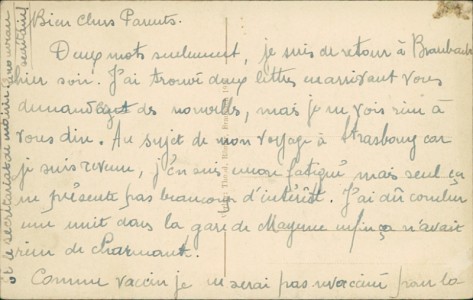 Bien Chers Parents.
Deux mots seulement, je suis de retour à Braubach
hier soir. J'ai trouvé deux lettres m'arrivant vous
demandez des nouvelles, mais je ne vois rien à
vous dire. Au sujet de mon voyage à Strasbourg car
je suis revenu, j'en suis encore fatigué mais seul ça
ne présente pas beaucoup d'intérêt. J'ai dû coucher
une nuit dans la gare de Mayence enfin ça n'avait
rien de charmant.
Comme vaccin je ne serai pas revacciné pour la
et le secrétariat de mairie
secrétaire